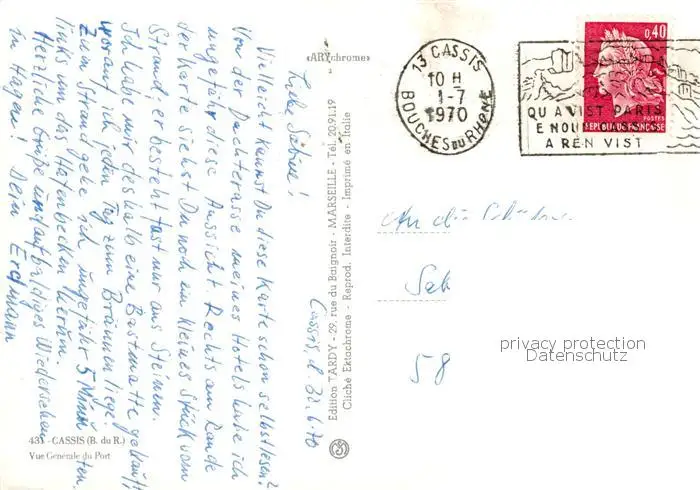 Cassis, d. 30.6.70
Liebe Sabine!
Vielleicht kannst Du diese Karte schon selbst lesen?
Von der Dachterasse meines Hotels habe ich
ungefähr diese Aussicht. Rechts am Rande
der Karte siehst Du noch ein kleines Stück vom
Strand; er besteht fast nur aus Steinen.
Ich habe mir deshalb eine Bastmatte gekauft,
worauf ich jeden Tag zum Bräunen liege.
Zum Strand gehe ich ungefähr 5 Minuten.
links um das Hafenbecken herum.
Herzliche Grüße und auf baldiges Wiedersehen
in Hagen! Dein Erdmann
«ARYchrome»
Edition TARDY - 29, rue du Baignoir - MARSEILLE - Tél. 20.91.19
Cliché Ektachrome - Reprod. Interdite - Imprimé en Italie
431 - CASSIS (B. du R.)
Vue Générale du Port
13 CASSIS
10 H
1-7
1970
BOUCHES DU RHONE
QU A VIST PARIS
E NOUN
A REN VIST
0,40
POSTES
REPUBLIQUE FRANCAISE
An die
Sab
58
privacy protection
Datenschutz